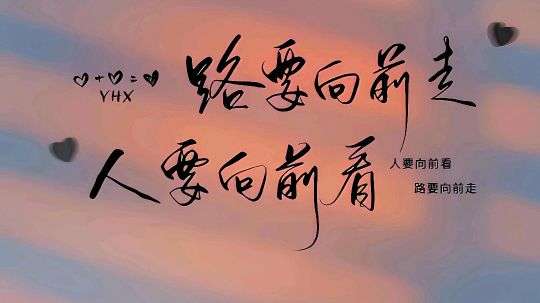 路要向前走
♡+♡=♡
YHX
人要向前看
人要向前看
路要向前走